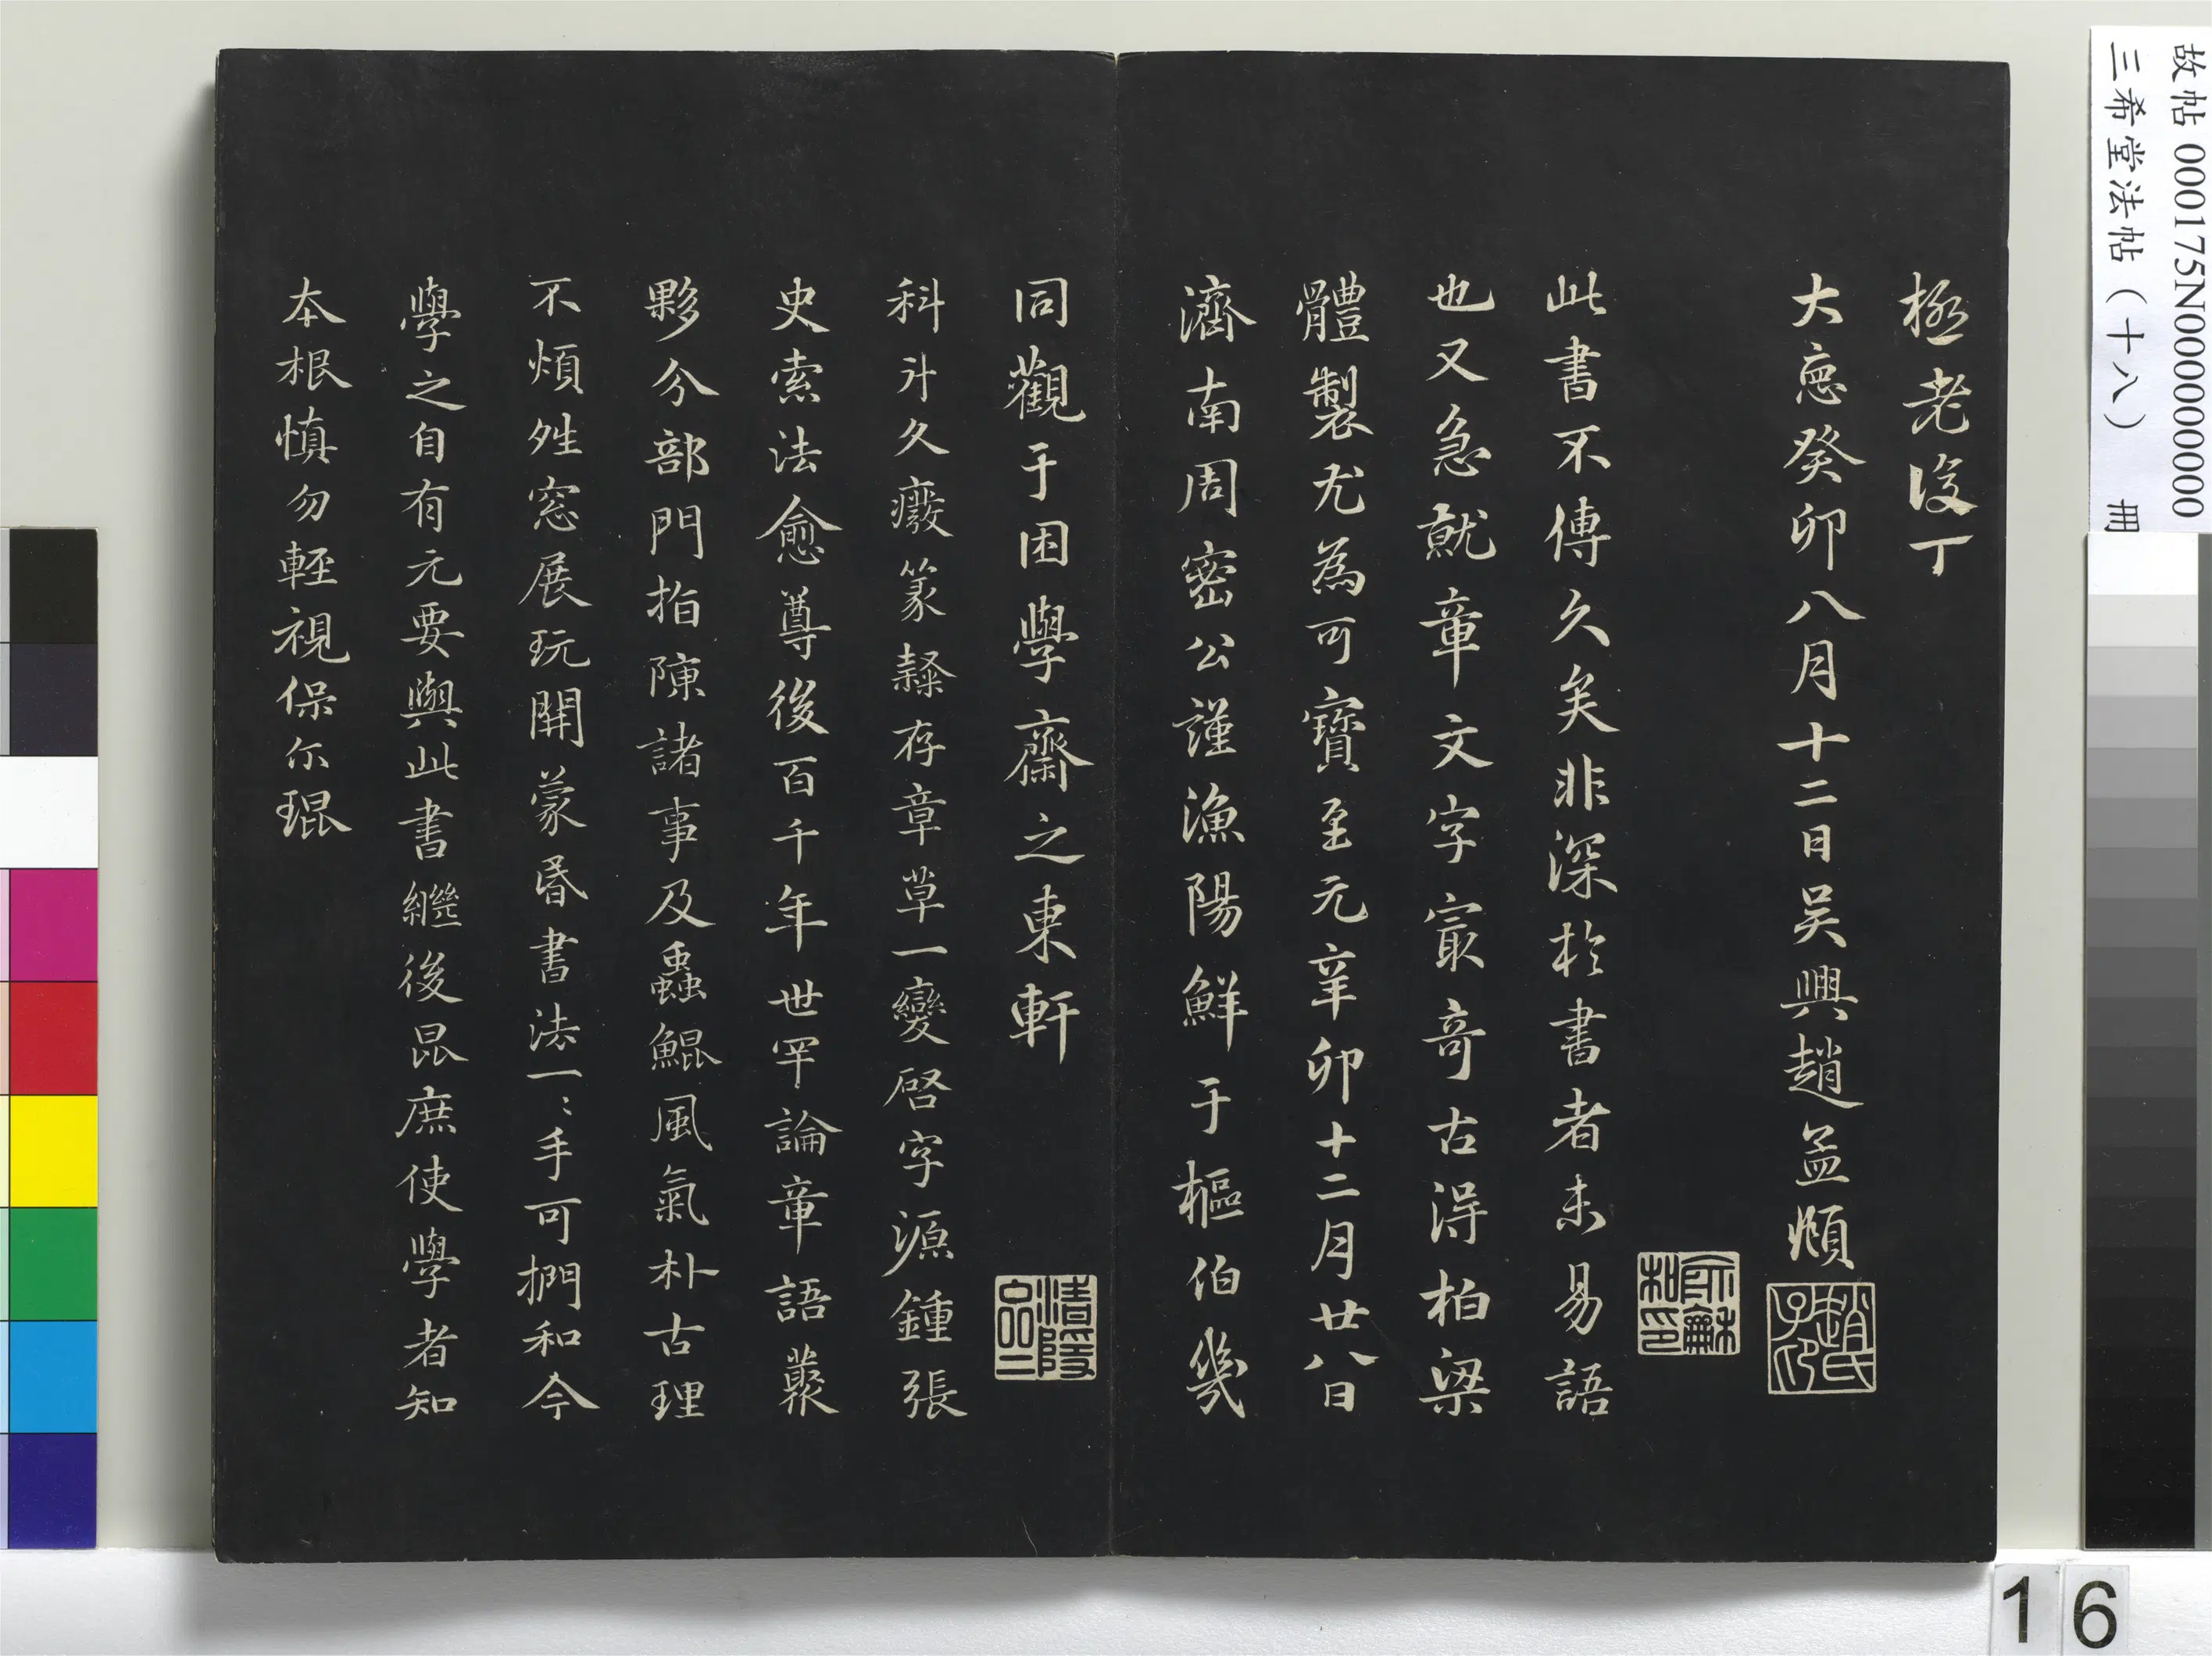 極老後丁
大德癸卯八月十二日吴興趙孟頫
趙氏子印
俞龢 和印
此書不傳久矣非深於書者未易語
也又急就章文字冣奇古淂柏梁
體製尤為可寶至元辛卯十二月廿八日
濟南周密公謹漁陽鮮于樞伯幾
同觀于困學齋之東軒
清隱
科斗久癈篆隸存章草一變啓字源鍾張
史索法愈尊後百千年世罕論章語藂
夥分部門指陳諸事及蟲鯤風氣朴古理
不煩姓窓展玩開蒙昏書法一〻手可捫和今
學之自有元要與此書繼後昆庶使學者知
本根慎勿輕視保尔琨
故帖 000175N000000000
三希堂法帖（十八） 冊
16